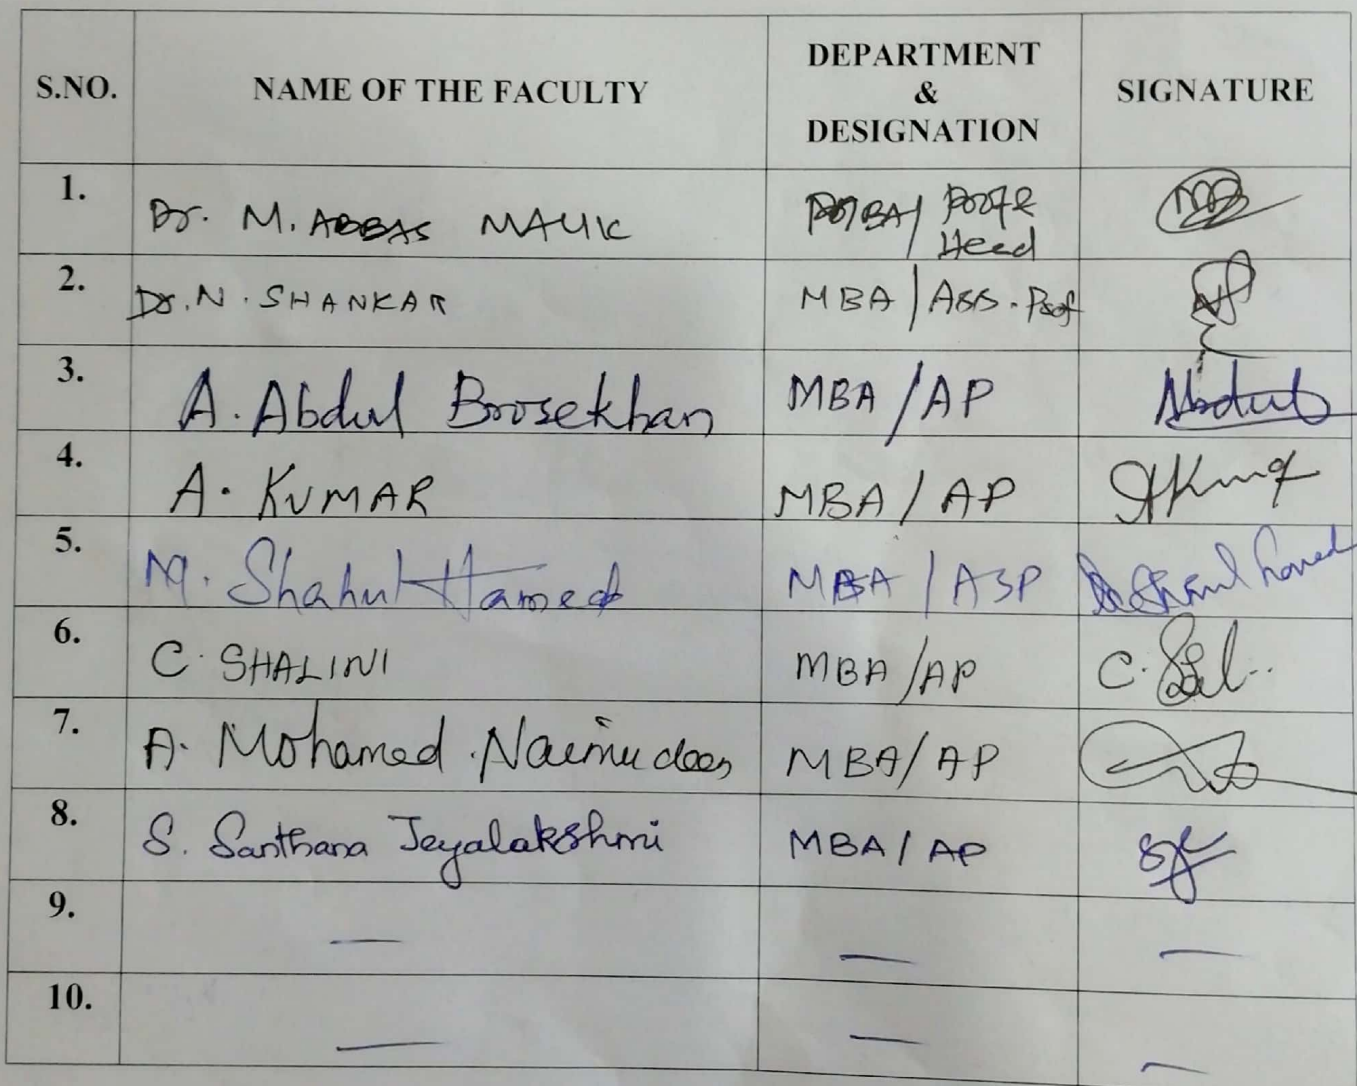 S.NO. NAME OF THE FACULTY DEPARTMENT & DESIGNATION SIGNATURE
1. Dr. M. ABBAS MALIK MBA/ Prof & Head
2. Dr. N. SHANKAR MBA / Ass. Prof
3. A. Abdul Brosekhan MBA / AP Abdul
4. A. KUMAR MBA / AP
5. M. Shahul Hameed MBA / ASP
6. C. SHALINI MBA / AP
7. A. Mohamed Naimudeen MBA / AP
8. S. Santhana Jeyalakshmi MBA / AP
9. — — —
10. — — —